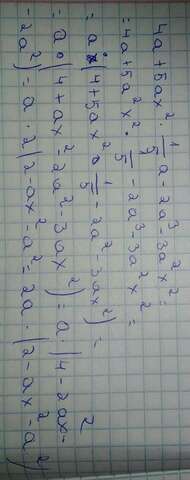 4a+5ax²·1/5 a-2a³-3a²x²=
=4a+5a²x²·1/5-2a³-3a²x²=
=a·(4+5ax²·1/5-2a²-3ax²)=
=a·(4+ax²-2a²-3ax²)=a·(4-2ax²-
-2a²)=a·2(2-ax²-a²)=2a·(2-ax²-a²)